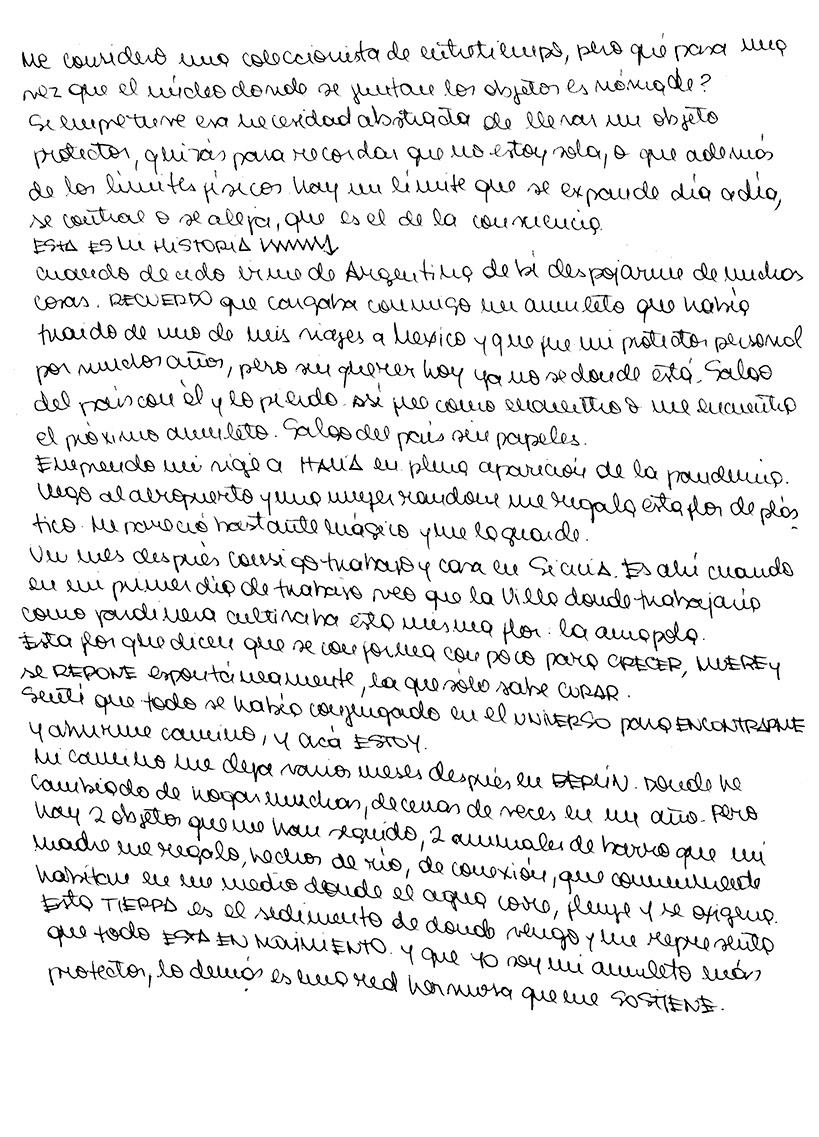 Me considero una coleccionista de entretiempo, pero qué pasa una
vez que el núcleo donde se juntan los objetos es nómade?
Siempre tuve esa necesidad abstracta de llevar un objeto
protector, quizás para recordar que no estoy sola, o que además
de los límites físicos hay un límite que se expande día a día,
se contrae o se aleja, que es el de la consciencia.
ESTA ES MI HISTORIA
Cuando decido irme de Argentina debí despojarme de muchas
cosas. RECUERDO que cargaba conmigo un amuleto que había
traído de uno de mis viajes a Mexico y que fue mi protector personal
por muchos años, pero sin querer hoy ya no se donde está. Salgo
del país con él y lo pierdo. Así fue como encuentro o me encuentra
el próximo amuleto. Salgo del país sin papeles.
Emprendo mi viaje a ITALIA en plena aparición de la pandemia.
Llego al aeropuerto y una mujer random me regala esta flor de plás
tico. Me pareció bastante mágico y me la guardé.
Un mes después consigo trabajo y casa en SICILIA. Es ahí cuando
en mi primer día de trabajo veo que la Villa donde trabajaría
como jardinera cultivaba esta misma flor: la amapola.
Esta flor que dicen que se conforma con poco para CRECER, MUERE y
se REPONE espontáneamente, la que sólo sabe CURAR.
Sentí que todo se había conjugado en el UNIVERSO para ENCONTRARME
y abrirme camino, y acá ESTOY.
Mi camino me deja varios meses después en BERLÍN. Donde he
cambiado de hogar muchas, decenas de veces en un año. Pero
hay 2 objetos que me han seguido, 2 animales de barro que mi
madre me regaló, hechos de río, de conexión, que comunmente
habitan en un medio donde el agua corre, fluye y se oxigena.
Esta TIERRA es el sedimento de donde vengo y me representa
que todo ESTA EN MOVIMIENTO. Y que yo soy mi amuleto más
protector, lo demás es una red hermosa que me SOSTIENE.